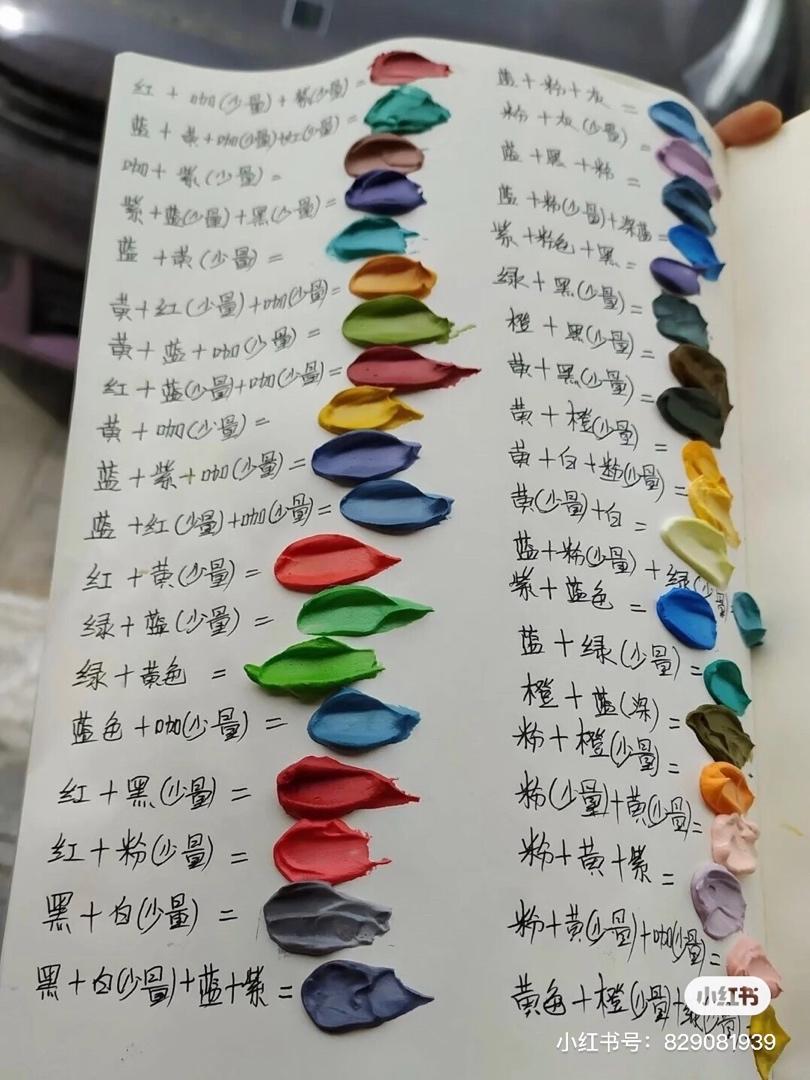 红+咖(少量)+紫(少量)=
蓝+黄+咖(少量)+红(少量)=
咖+紫(少量)=
紫+蓝(少量)+黑(少量)=
蓝+黄(少量)=
黄+红(少量)+咖(少量)=
黄+蓝+咖(少量)=
红+蓝(少量)+咖(少量)=
黄+咖(少量)=
蓝+紫+咖(少量)=
蓝+红(少量)+咖(少量)=
红+黄(少量)=
绿+蓝(少量)=
绿+黄色=
蓝色+咖(少量)=
红+黑(少量)=
红+粉(少量)=
黑+白(少量)=
黑+白(少量)+蓝+紫=
蓝+粉+灰=
粉+灰(少量)=
蓝+黑+粉=
蓝+粉(少量)+深蓝=
紫+粉色+黑=
绿+黑(少量)=
橙+黑(少量)=
黄+黑(少量)=
黄+橙(少量)=
黄+白+粉(少量)=
黄(少量)+白=
蓝+粉(少量)+绿(少量)=
紫+蓝色=
蓝+绿(少量)=
橙+蓝(深)=
粉+橙(少量)=
粉(少量)+黄(少量)=
粉+黄+紫=
粉+黄(少量)+咖(少量)=
黄色+橙(少量)+绿(少量)=
小红书
小红书号：829081939